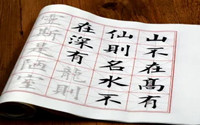 山不在高有
仙則名水不
在深有龍則
靈斯是陋室